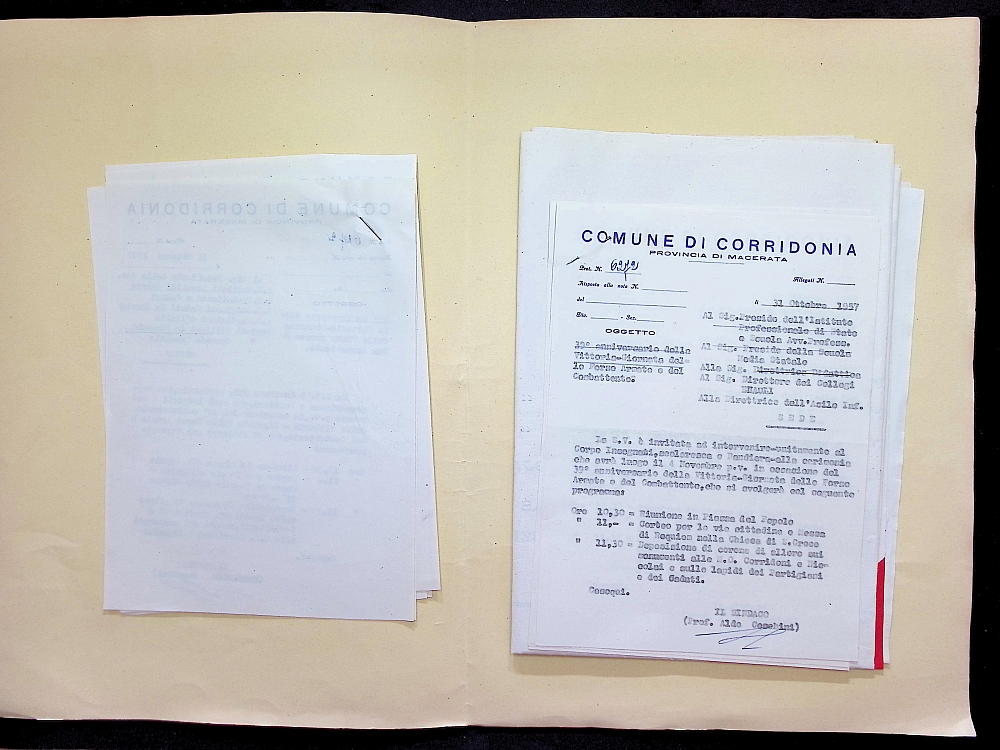 COMUNE DI CORRIDONIA
PROVINCIA DI MACERATA
Prot. N.
Allegati N.
Risposta alla nota N.
del
li 31 Ottobre 1957
Div. - Sez.
OGGETTO
39° anniversario della
Vittoria-Giornata del-
le Forze Armate e del
Combattente:
Al Sig.Preside dell'Istituto
Professionale di Stato
e Scuola Avv.Profess.
Al Sig. Preside della Scuola
Media Statale
Alla Sig. Direttrice Didattica
Al Sig. Direttore dei Collegi
ENAOLI
Alla Direttrice dell'Asilo Inf.
SEDE
La S.V. è invitata ad intervenire-unitamente al
Corpo Insegnati,scolaresca e Bandiera-alla cerimonia
che avrà luogo il 4 Novembre p.v. in occasione del
39° anniversario della Vittoria-Giornata delle Forze
Armate e del Combattente,che si svolgerà col seguente
programma:
Ore 10,30 = Riunione in Piazza del Popolo
" 11,- = Corteo per le vie cittadine e Messa
di Requiem nella Chiesa di S.Croce
" 11,30 = Deposizione di corone di alloro sui
monumenti alle M.O. Corridoni e Nic-
colai e sulle lapidi dei Partigiani
e dei Caduti.
Ossequi.
IL SINDACO
(Prof. Aldo